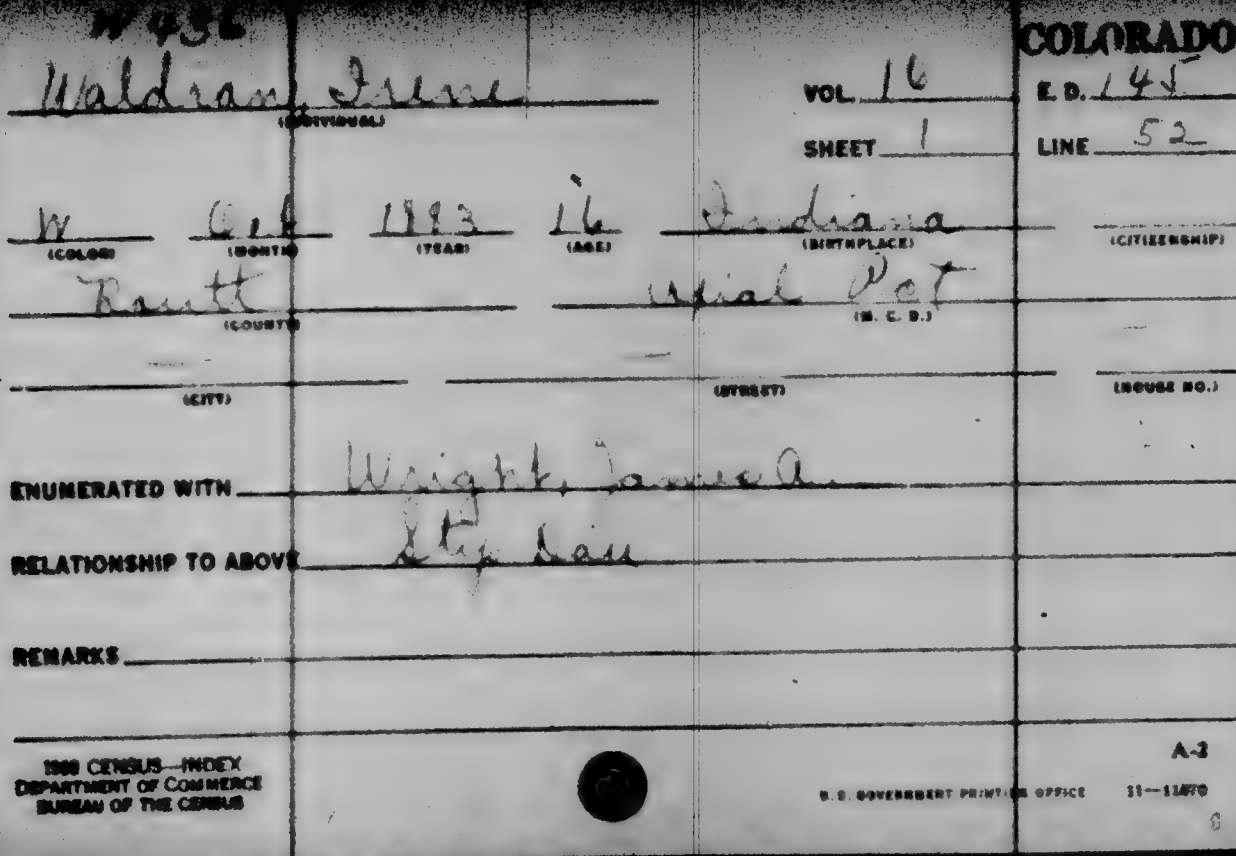 W436
COLORADO
Waldran, Irene
(INDIVIDUAL)
VOL. 16
E. D. 145
SHEET 1
LINE 52
W Oct 1883 16 Indiana
(COLOR) (MONTH) (YEAR) (AGE) (BIRTHPLACE) (CITIZENSHIP)
Routt Pct
(COUNTY) (M. C. D.)
— —
(CITY) (STREET) (HOUSE NO.)
ENUMERATED WITH Wright, James A.
RELATIONSHIP TO ABOVE Step Dau
REMARKS
1900 CENSUS—INDEX
DEPARTMENT OF COMMERCE
BUREAU OF THE CENSUS
A-2
U.S. GOVERNMENT PRINTING OFFICE 11—11870